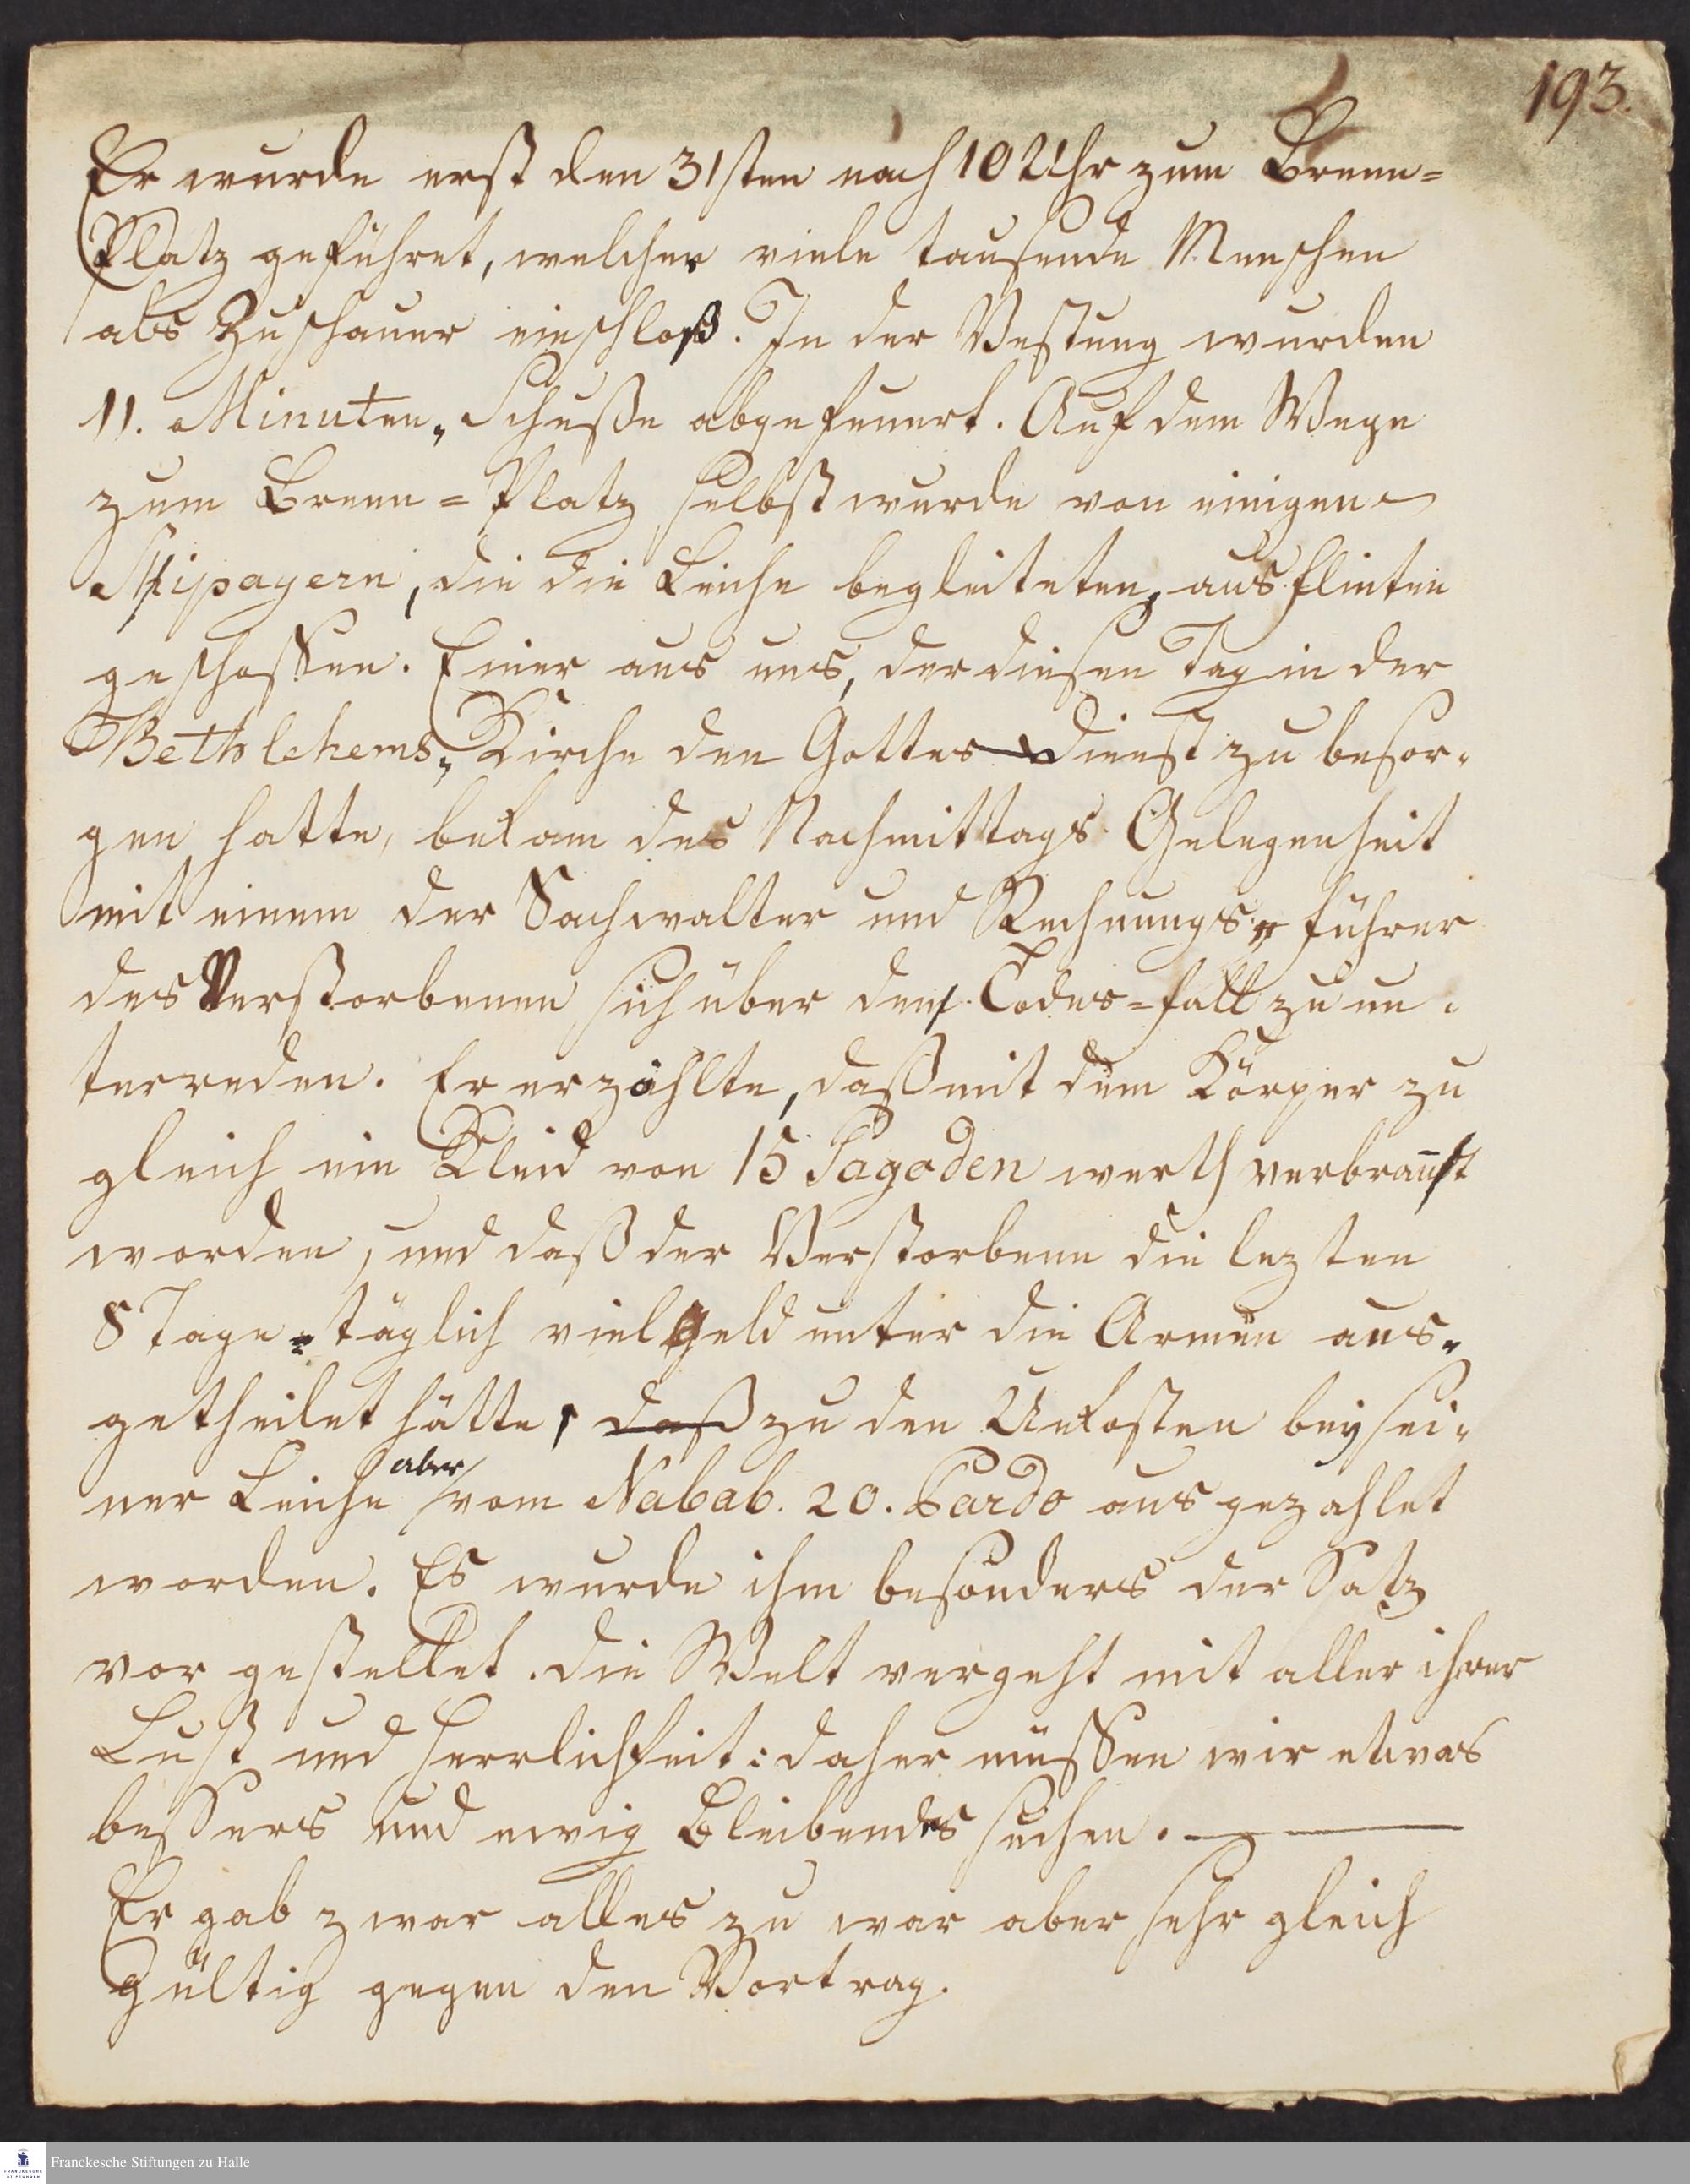 193.
Er wurde erst den 31sten nach 10 Uhr zum Brenn=
Platz geführet, welcher viele tausende Menschen
als Zuschauer einschloß. In der Vestung wurden
11. Minuten„ Schuße abgefeuert. Auf dem Wege
zum Brenn=Platz selbst wurde von einigen
Sipayern, die die Leiche begleiteten, aus flinten
geschossen. Einer aus uns, der diesen Tag in der
Bethlehems„ Kirche den Gottesdienst zu besor„
gen hatte, bekam des Nachmittags Gelegenheit
mit einem der Sachwalter und Rechnungs„ führer
des Verstorbenen sich über den Todes=fall zu un„
terreden. Er erzählte, daß mit dem Körper zu
gleich ein Kleid von 15 Pagoden werth verbrannt
worden, und daß der Verstorbene die lezten
8 Tage täglich viel Geld unter die Armen aus„
getheilet hätte, daß zu den Unkosten bey sei„
aber
ner Leiche vom Nabab. 20. Pardo ausgezahlet
worden. Es wurde ihm besonders der Satz
vor gestellet. die Welt vergeht mit aller ihrer
Lust und Herrlichkeit: daher müssen wir etwas
bessers und ewig Bleibendes suchen. —
Er gab zwar alles zu war aber sehr gleich
gültig gegen den Vortrag.
Franckesche Stiftungen zu Halle
FRANCKESCHE
STIFTUNGEN